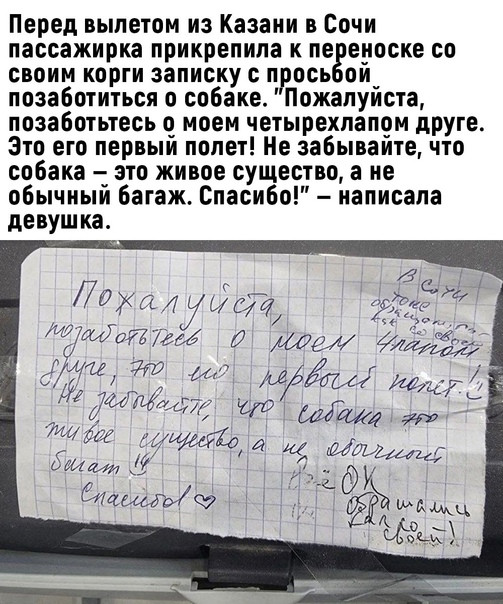 Перед вылетом из Казани в Сочи
пассажирка прикрепила к переноске со
своим корги записку с просьбой
позаботиться о собаке. "Пожалуйста,
позаботьтесь о моем четырехлапом друге.
Это его первый полет! Не забывайте, что
собака – это живое существо, а не
обычный багаж. Спасибо!" – написала
девушка.
В Сочи
тоже
обращались
как со своей
Пожалуйста,
позаботьтесь о моем 4лапом
друге, это его первый полет!!
Не забывайте, что собака это
живое существо, а не обычный
багаж !!
Спасибо! ♡
Всё ОК
обращались
как со
своей!